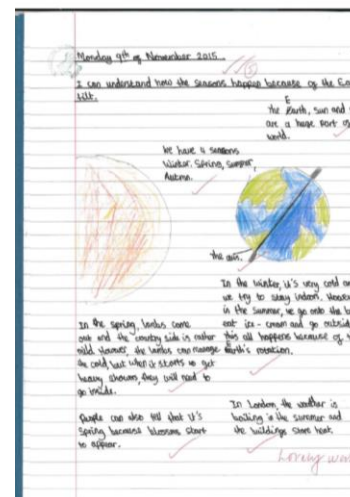 Monday 9th of November 2015
I can understand how the seasons happen because of the Ea
tilt.
E
the Earth, Sun and
are a huge part of
world.
We have 4 seasons
Winter, Spring, Summer,
Autmn.
the axis.
In the winter, it's very cold an
we try to stay indoors. Howev
in the summer, we go onto the b
eat ice-cream and go outsid
this all happens because of t
Earth's rotation.
In the spring, lambs come
out and the country side is rather
mild. However, the lambs can manage
the cold, but when it starts to get
heavy showers they will need to
go inside.
People can also tell that it's
Spring because blossoms start
to appear.
In London, the weather is
boiling in the summer and
the buildings store heat.
Lovely wor